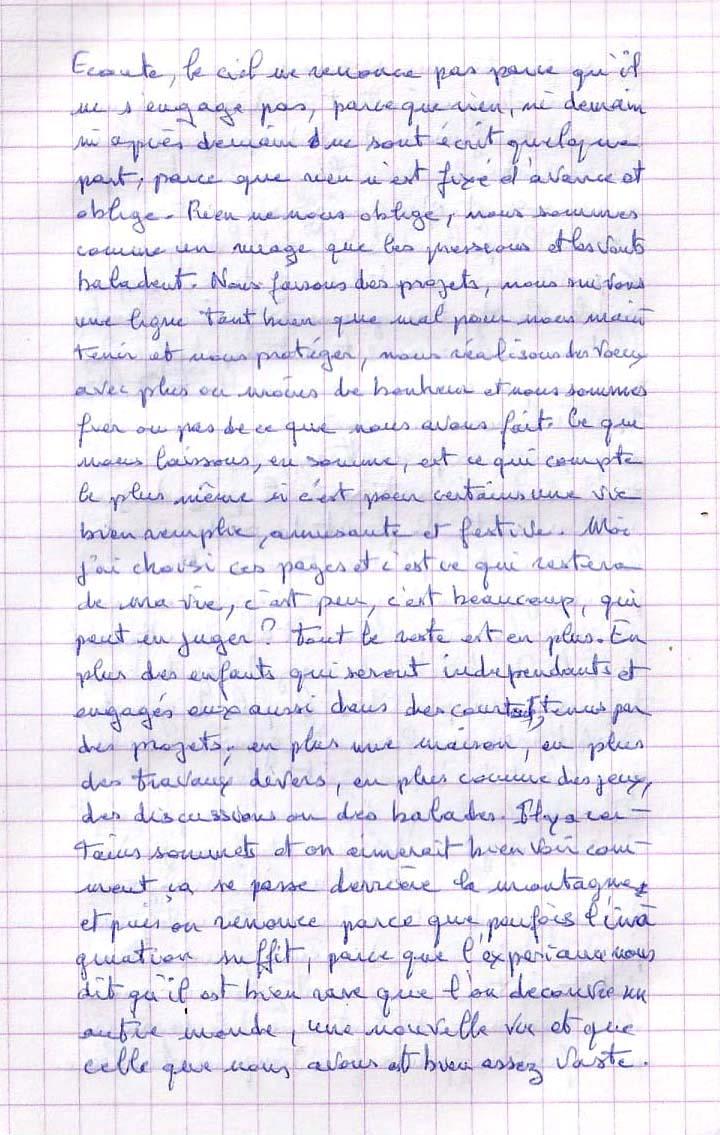 Ecoute, le ciel ne renonce pas parce qu'il
ne s'engage pas, parce que rien, ni demain
ni après demain ne sont écrit quelque
part, parce que rien n'est fixé d'avance et
oblige. Rien ne nous oblige, nous sommes
comme un nuage que les pressions et les vents
baladent. Nous faisons des projets, nous suivons
une ligne tant bien que mal pour nous main
tenir et nous protéger, nous réalisons des voeux
avec plus ou moins de bonheur et nous sommes
fier ou pas de ce que nous avons fait. Ce que
nous laissons, en somme, est ce qui compte
le plus même si c'est pour certains une vie
bien remplie, amusante et festive. Moi
j'ai choisi ces pages et c'est ce qui restera
de ma vie, c'est peu, c'est beaucoup, qui
peut en juger? tout le reste est en plus. En
plus des enfants qui seront indépendants et
engagés eux aussi dans des tenus par
des projets, en plus une maison, en plus
des travaux divers, en plus comme des jeux,
des discussions ou des balades. Il y a cer-
tains sommets et on aimerait bien voir com-
ment ça se passe derrière la montagne
et puis on renonce parce que parfois l'ima
gination suffit, parce que l'expérience nous
dit qu'il est bien rare que l'on découvre un
autre monde, une nouvelle vie et que
celle que nous avons est bien assez vaste.